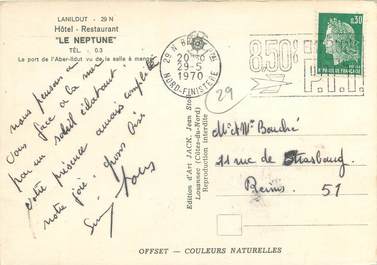 LANILDUT - 29 N
Hôtel - Restaurant
"LE NEPTUNE"
TÉL. 03
Le port de l'Aber-Ildut vu de la salle à manger
nous pensons à
vous face à la mer
par un soleil éclatant
votre présence aurait complété
notre joie. Gros bis
Edition d'Art JACK, Jean
Louannec (Côtes-du-Nord)
Reproduction interdite
29 N
29-5
1970
NORD-FINISTERE
29
850
P.T.T.
0,30
REPUBLIQUE FRANÇAISE
M. et Mme Bouché
11 rue de Strasbourg
Reims 51
OFFSET — COULEURS NATURELLES